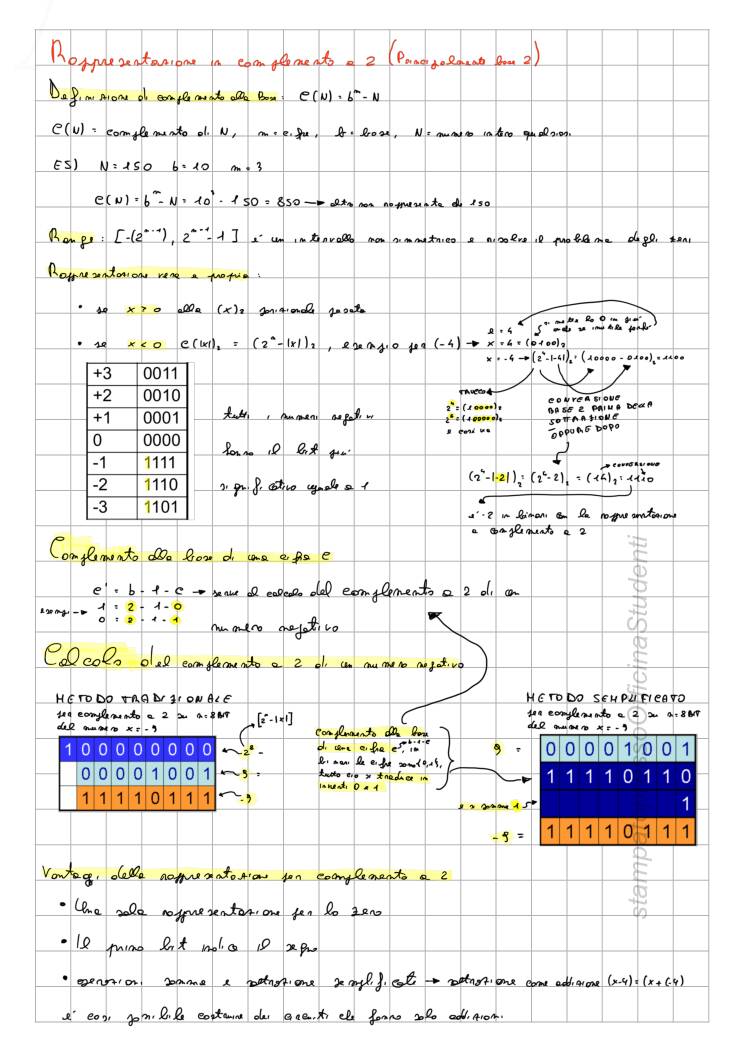 Rappresentazione in complemento a 2 (Principalmente base 2)
Definizione di complemento alla Base: C(N) = bᵐ - N
C(N) = complemento di N, m = cifre, b = base, N = numero intero qualsiasi
ES) N = 150 b = 10 m = 3
C(N) = bᵐ - N = 10³ - 150 = 850 → altra non rappresenta di 150
Range: [-(2ⁿ⁻¹), 2ⁿ⁻¹-1] è un intervallo non simmetrico e risolve il problema degli zeri
Rappresentazione vera e propria:
• se x > 0 alla (x)₂ posizionale
• se x < 0 C(|x|)₂ = (2ⁿ-|x|)₂, esempio per (-4) →
metto lo 0 in più
x = 4 = (0100)₂
x = -4 → (2⁴-|-4|)₂ = (10000 - 0100)₂ = 1100
TRUCCO
2⁴ = (10000)₂
e così via
CONVERSIONE
BASE 2 PRIMA DELLA
SOTTRAZIONE
OPPURE DOPO
+3 0011
+2 0010
+1 0001
0 0000
-1 1111
-2 1110
-3 1101
tutti i numeri negativi
hanno il bit più
significativo uguale a 1
conversione
(2⁴-|-2|)₂ = (2⁴-2)₂ = (14)₂ = 1110
è -2 in binario con la rappresentazione
a complemento a 2
Complemento alla base di una cifra c
c' = b - 1 - c → serve al calcolo del complemento a 2 di un
esempi → 1 = 2 - 1 - 0
0 = 2 - 1 - 1
numero negativo
Calcolo del complemento a 2 di un numero negativo
METODO TRADIZIONALE
per complemento a 2 su n = 8 BIT
del numero x = -9
[2ⁿ-|x|]
1 0 0 0 0 0 0 0 0 2⁸ -
0 0 0 0 1 0 0 1 9 =
1 1 1 1 0 1 1 1 -9
complemento alla base
di una cifra c', in
binari le cifre sono {0,1},
tutto ciò si traduce in
inverti 0 e 1
METODO SEMPLIFICATO
per complemento a 2 su n = 8 BIT
del numero x = -9
9 = 0 0 0 0 1 0 0 1
1 1 1 1 0 1 1 0
e si somma 1 1
-9 = 1 1 1 1 0 1 1 1
Vantaggi della rappresentazione per complemento a 2
• Una sola rappresentazione per lo zero
• Il primo bit indica il segno
• operazioni somma e sottrazione semplificate → sottrazione come addizione (x-4) = (x + (-4)
è così possibile costruire dei circuiti che fanno solo addizioni.
stampato presso OfficinaStudenti